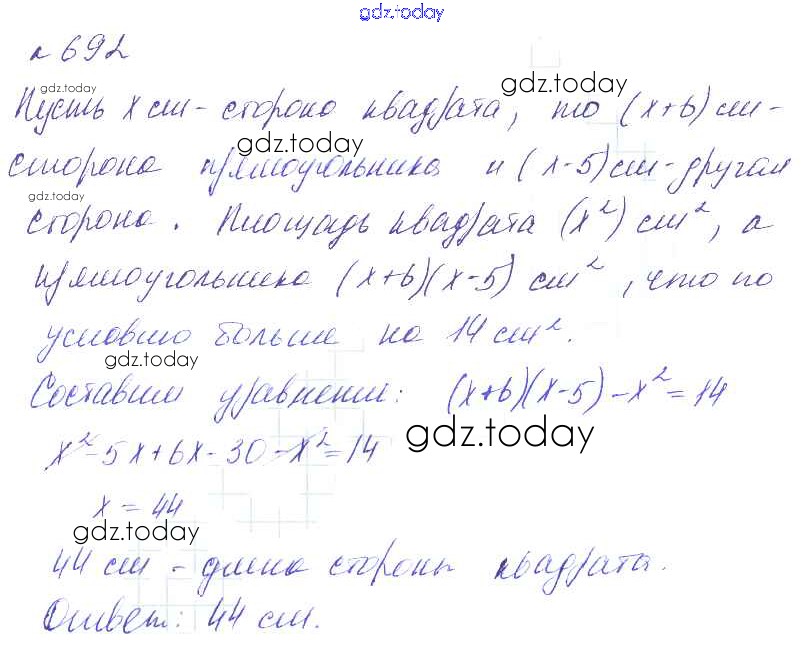 gdz.today
№ 692
gdz.today gdz.today
Пусть x см - сторона квадрата, то (x+6) см -
gdz.today
сторона прямоугольника и (x-5) см - другая
gdz.today
сторона. Площадь квадрата (x²) см², а
прямоугольника (x+6)(x-5) см², что по
условию больше на 14 см².
gdz.today
Составим уравнение: (x+6)(x-5) - x² = 14
gdz.today
x² - 5x + 6x - 30 - x² = 14
x = 44
gdz.today
44 см - длина стороны квадрата.
Ответ: 44 см.